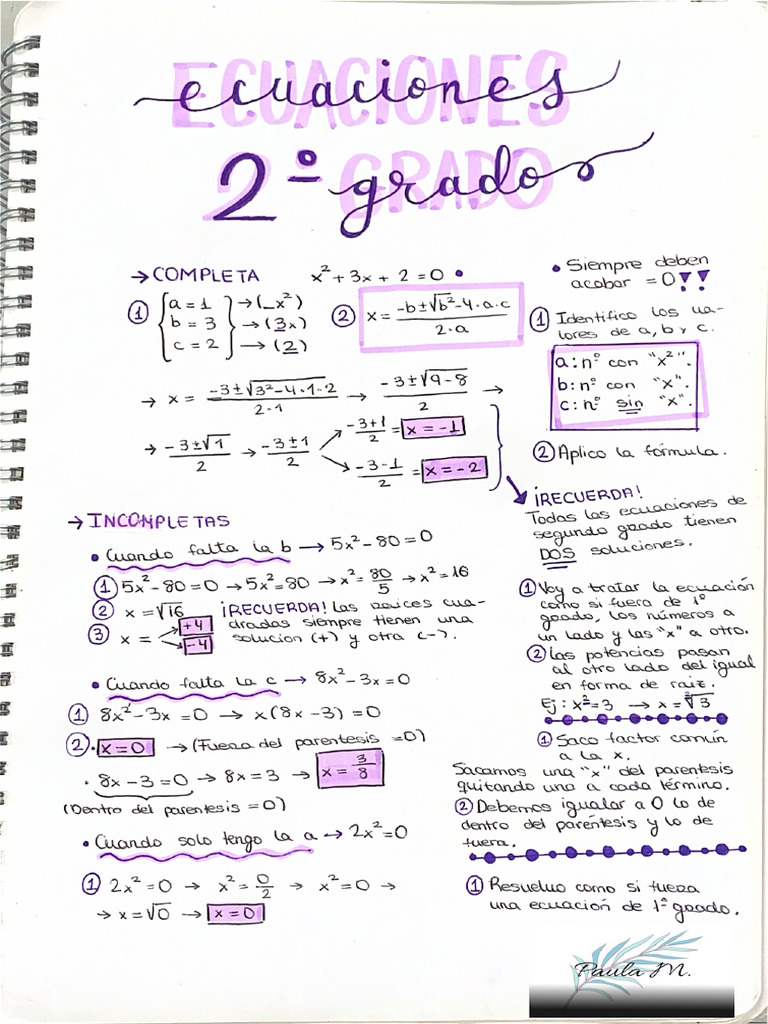 ECUACIONES
ecuaciones
2º GRADO
2º grado
→ COMPLETA x² + 3x + 2 = 0 •
① { a = 1 } → (_x²)
b = 3 → (3x)
c = 2 → (2)
② x = (-b ± √(b² - 4·a·c)) / (2·a)
→ x = (-3 ± √(3² - 4·1·2)) / (2·1) → (-3 ± √(9 - 8)) / 2 →
→ (-3 ± √1) / 2 → (-3 ± 1) / 2
(-3 + 1) / 2 = x = -1
(-3 - 1) / 2 = x = -2
• Siempre deben
acabar = 0!!
① Identifico los va-
lores de a, b y c.
a: nº con "x²".
b: nº con "x".
c: nº sin "x".
② Aplico la fórmula.
¡RECUERDA!
Todas las ecuaciones de
segundo grado tienen
DOS soluciones.
→ INCOMPLETAS
• Cuando falta la b → 5x² - 80 = 0
① 5x² - 80 = 0 → 5x² = 80 → x² = 80/5 → x² = 16
② x = √16 ¡RECUERDA! Las raíces cua-
dradas siempre tienen una
solucion (+) y otra (-).
③ x = +4
-4
① Voy a tratar la ecuación
como si fuera de 1º
grado, los números a
un lado y las "x" a otro.
② Las potencias pasan
al otro lado del igual
en forma de raiz.
Ej: x² = 3 → x = ²√3
• Cuando falta la c → 8x² - 3x = 0
① 8x² - 3x = 0 → x(8x - 3) = 0
② · x = 0 → (Fuera del parentesis = 0)
· 8x - 3 = 0 → 8x = 3 → x = 3/8
(Dentro del parentesis = 0)
① Saco factor común
a la x.
Sacamos una "x" del parentesis
quitando una a cada término.
② Debemos igualar a 0 lo de
dentro del paréntesis y lo de
fuera.
• Cuando solo tengo la a → 2x² = 0
① 2x² = 0 → x² = 0/2 → x² = 0 →
→ x = √0 → x = 0
① Resuelvo como si fuera
una ecuación de 1º grado.
Paula M.